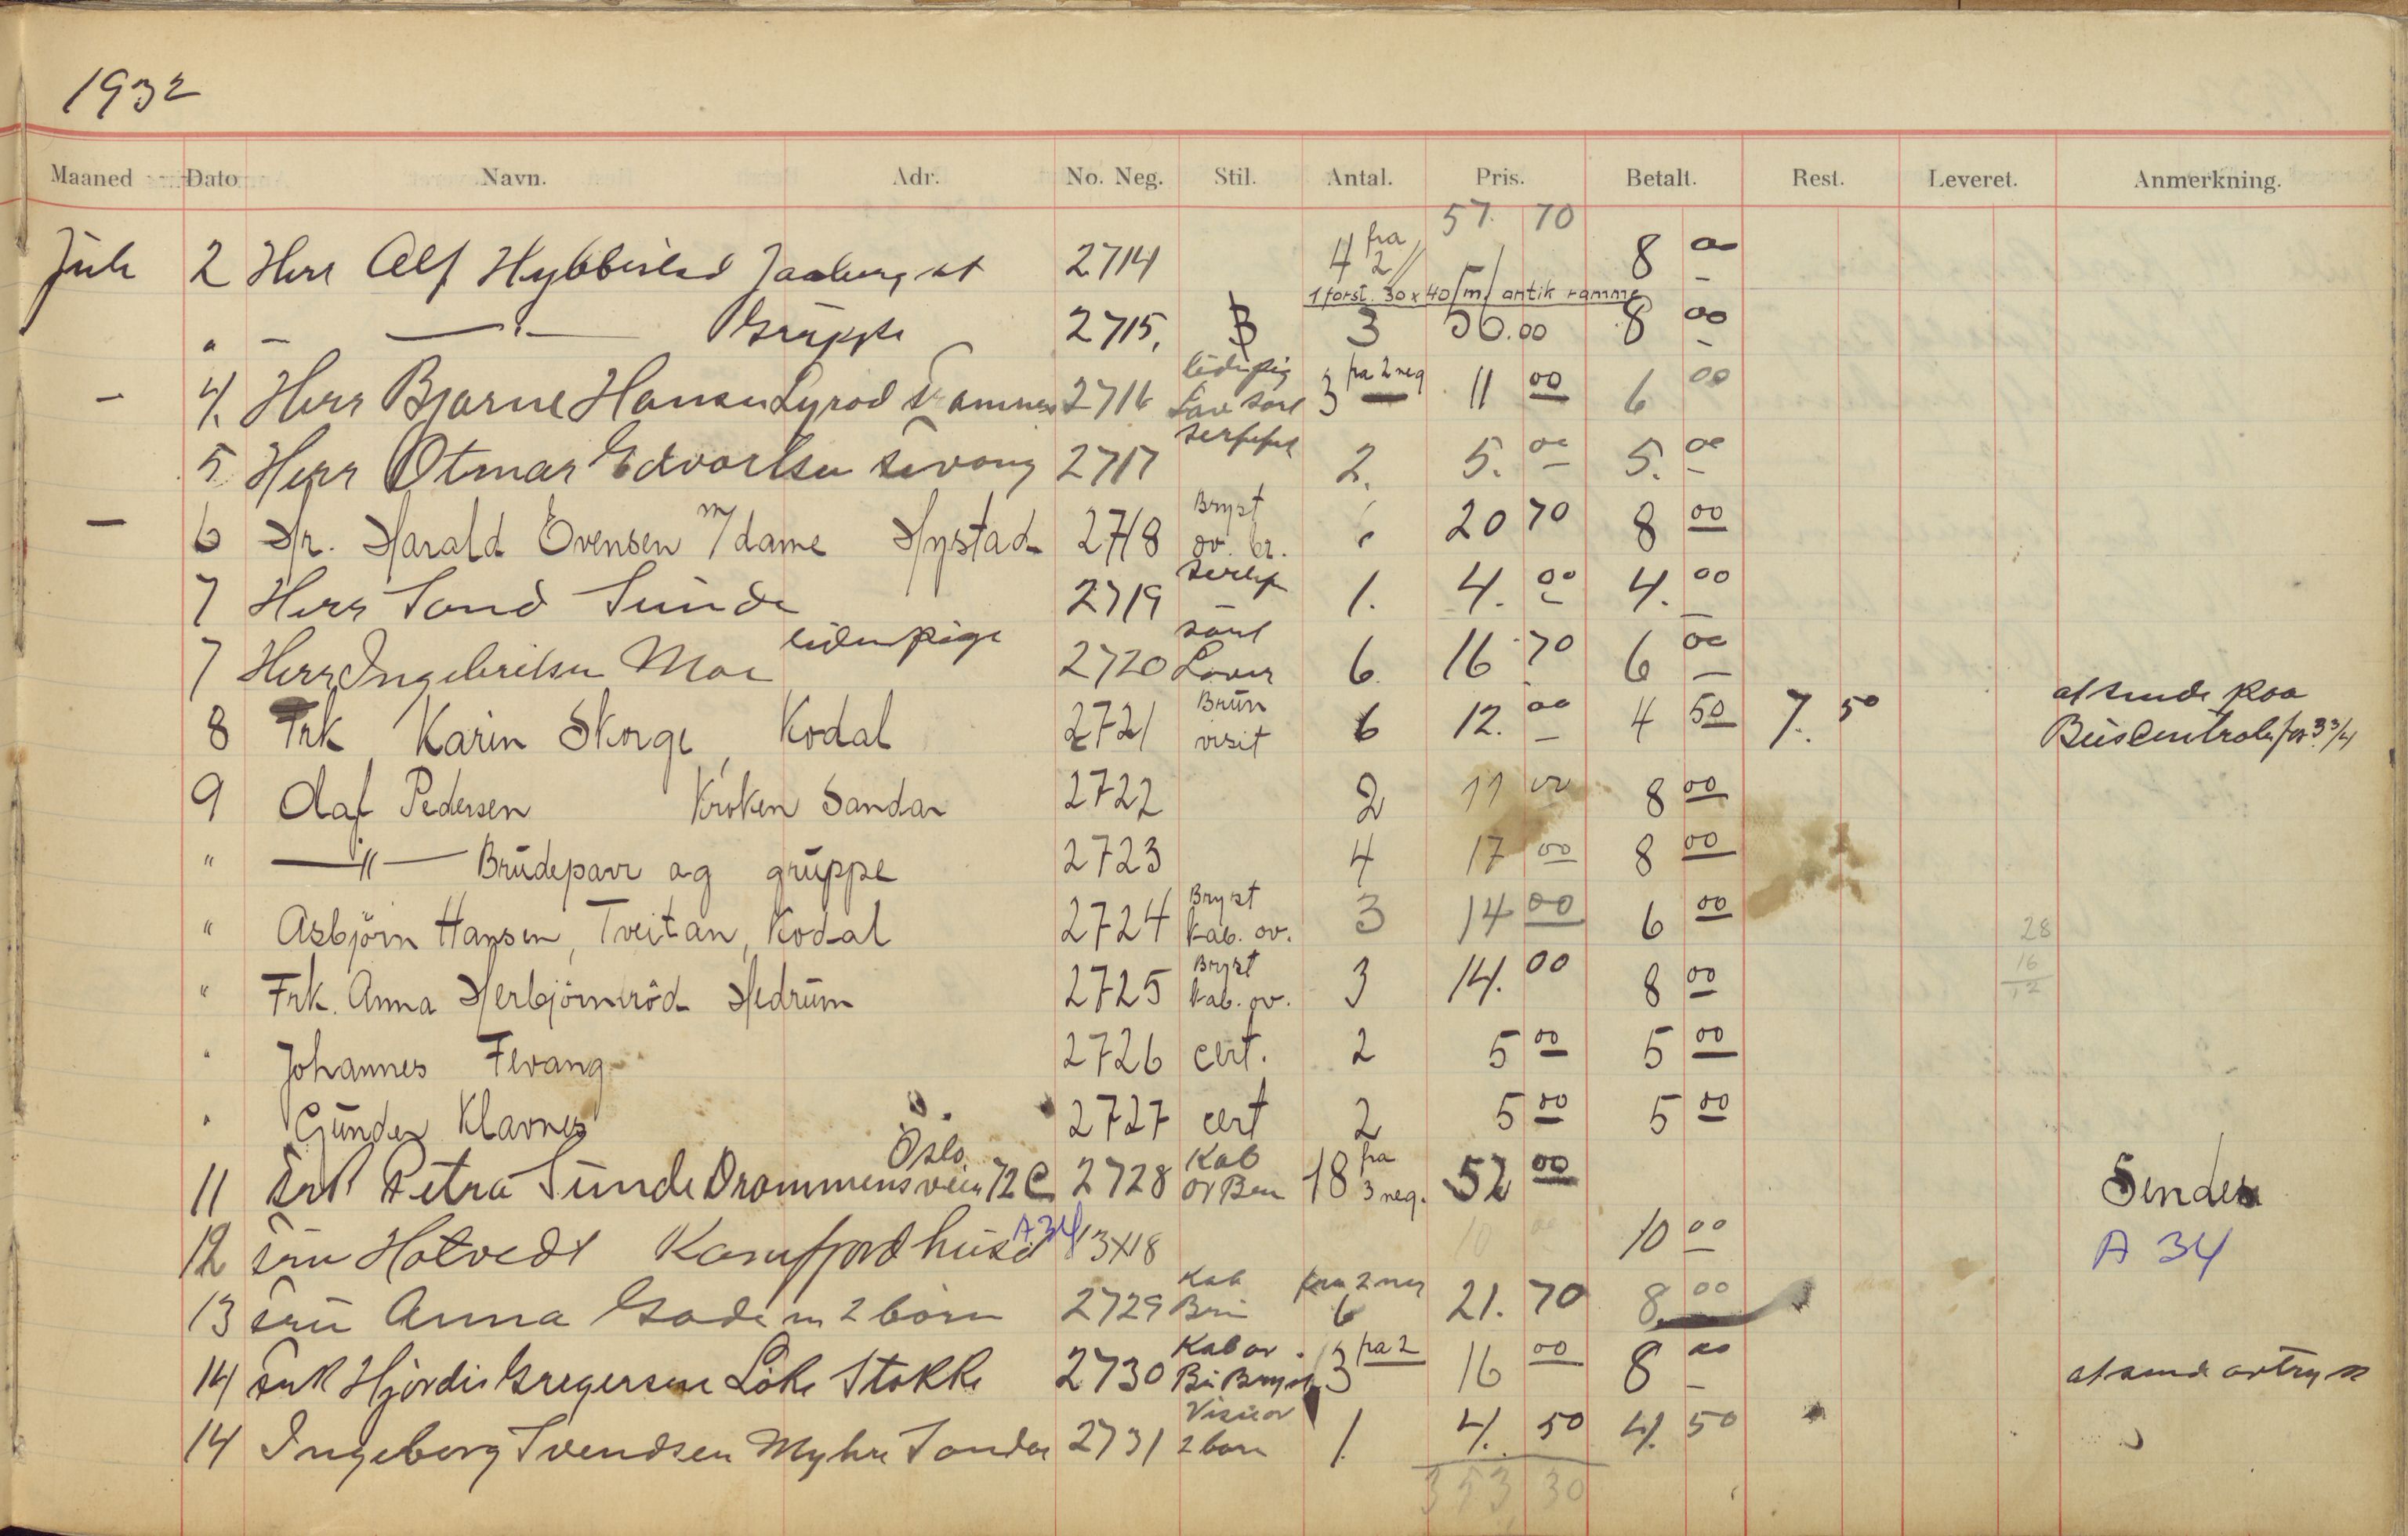 1932
Maaned Dato Navn. Adr. No. Neg. Stil. Antal. Pris. Betalt. Rest. Leveret. Anmerkning.
57. 70
Juli 2 Herr Alf 2714 4 fra 2 8 00
1 forst. 30 x 40 antik ramme
" - — " — Grüppe 2715. B 3 50.00 8 00
- 4. Herr Bjarne Hansen 2716 3 fra 2 neg 11 00 6 00
5 Herr Otmar Edvartsen 2717 2. 5. 00 5. 00
- 6 Hr. Harald Evensen m/dame Hystad 2718 Bryst ov. br. 20 70 8 00
7 Herr Sand Sünde 2719 1. 4. 00 4. 00
7 Herr Ingebritsen Moe 2720 6. 16 70 6 00
8 Frk Karin Skorge, Kodal 2721 Brün visit 6 12. 00 4 50 7. 50 afsende paa Büscentralen for 3 3/4
9 Olaf Pedersen Kroken Sandar 2722 2 11 00 8 00
" — " — Brüdeparr og grüppe 2723 4 17 00 8 00
" Asbjörn Hansen, Tveitan, Kodal 2724 Bryst kab. ov. 3 14 00 6 00 28
" Frk. Anna Herbjörnröd Hedrüm 2725 Bryst kab. ov. 3 14. 00 8 00 16
12
" Johannes Fevang 2726 cert. 2 5 00 5 00
" Günder Klavnes 2727 cert 2 5 00 5 00
11 Frk Petra Sünde Drammensveien 72 C Oslo. 2728 Kab 18 fra 3 neg. 52 00 Sendes
12 Frü Hotvedt Kamfjordhüsd A 34 13x18 10 00 10 00 A 34
13 Frü Anna Gade m 2 börn 2729 Kab fra 2 neg 6 21. 70 8 00
14 Frk Hjördis Gregersen Löke Stokke 2730 Kab ov 3 fra 2 16 00 8 00 afsend avtryk
14 Ingeborg Svendsen Myhre Sandar 2731 2 born 1 4. 50 4. 50
353 30